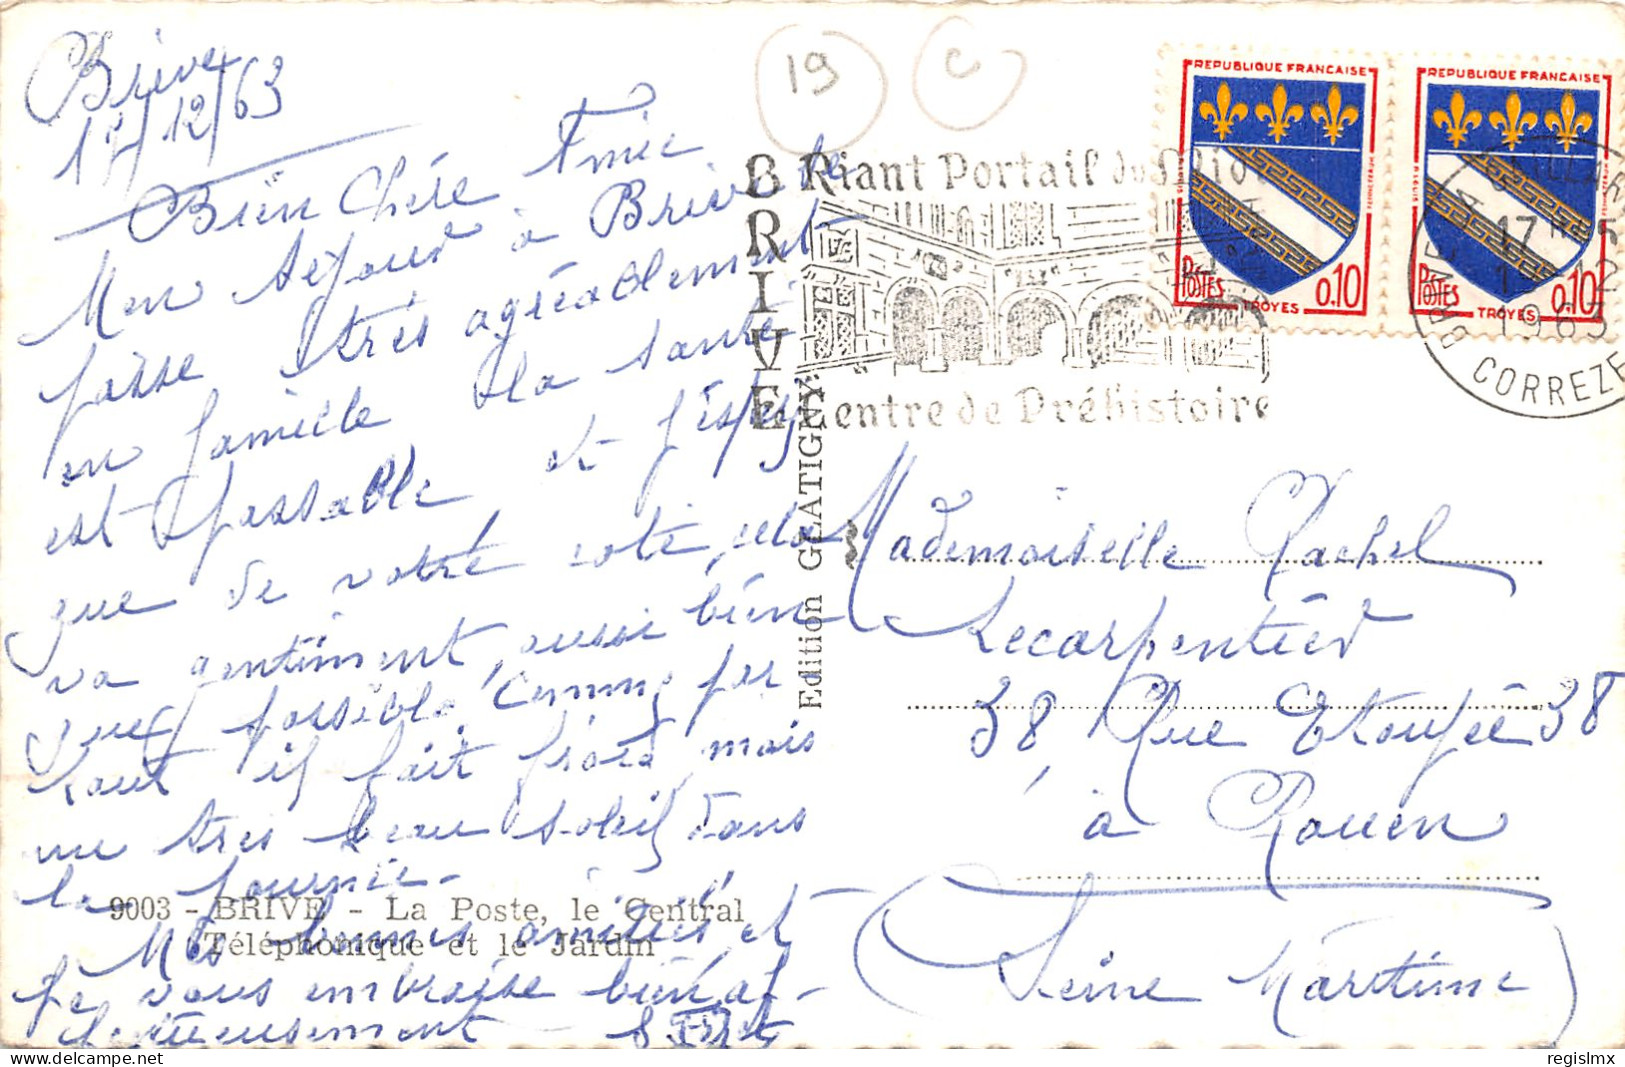 Brive
17/12/63
Bien Chère Amie
Mon séjour à Brive se
passe très agréablement
en famille la santé
est passable et j'espère
que de votre coté, cela
va gentiment, aussi bien
que possible, comme par
tout il fait froid, mais
un très beau soleil dans
la journée.
Mes bonnes amitiés, et
je vous embrasse bien af-
fectueusement
19
C
BRIVE
Riant Portail du Midi
Centre de Préhistoire
REPUBLIQUE FRANCAISE
POSTES
0.10
TROYES
REPUBLIQUE FRANCAISE
POSTES
0.10
TROYES
17H
12
1963
CORREZE
Edition GLATIGNY
Mademoiselle Rachel
Lecarpentier
38, Rue Etoupée 38
à Rouen
(Seine Maritime)
9003 - BRIVE - La Poste, le Central
Téléphonique et le Jardin
regislmx